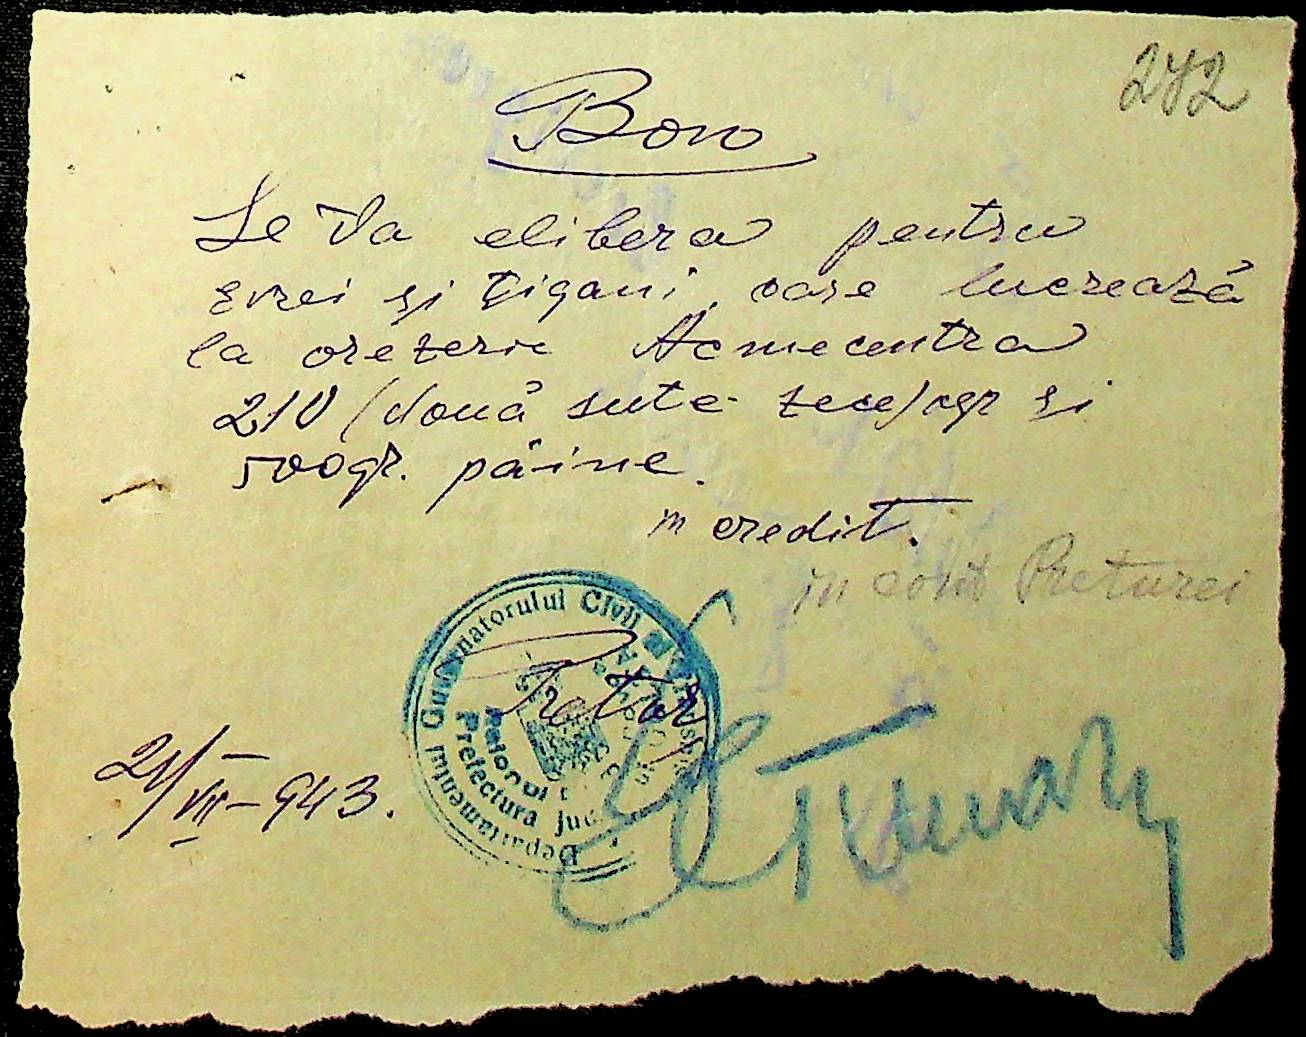 272
Bon
Se va elibera pentru
evrei și țigani, care lucrează
la orezerie Acmecentra
210 (două sute zece) kgr și
500 gr. pâine.
în credit.
in cont Preturei
Guvernatorului Civil
Pretor
Raionul
Prefectura Jud
Departamentul
21/VII-943.